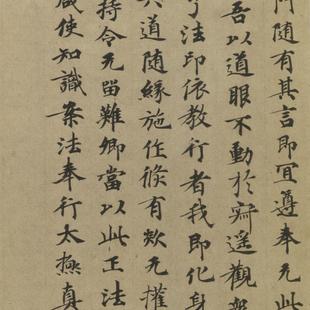 随有其言即冝遵奉无此
吾以道眼不動於寂遥觀
法印依教行者我即化身
道随緣施任倏有欻无權
持令无留難卿當以此正法
咸使知識案法奉行太極真